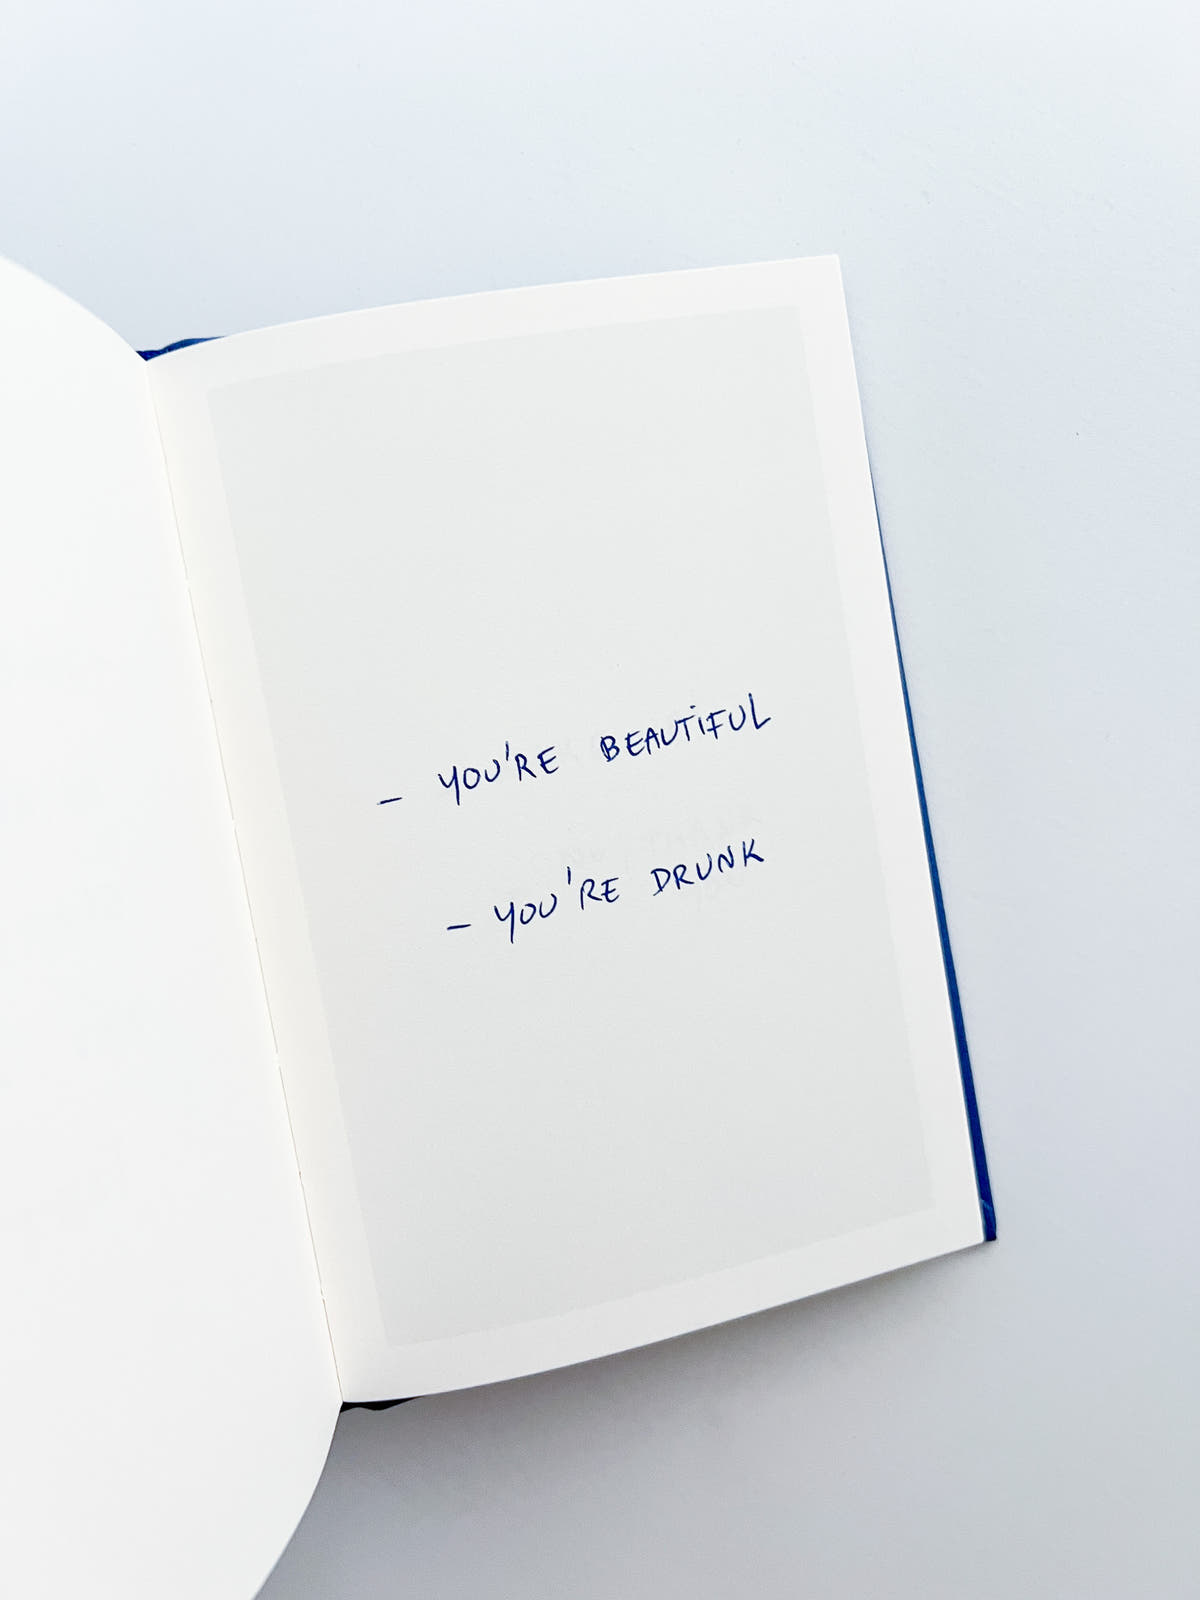 - YOU'RE BEAUTIFUL
- YOU'RE DRUNK